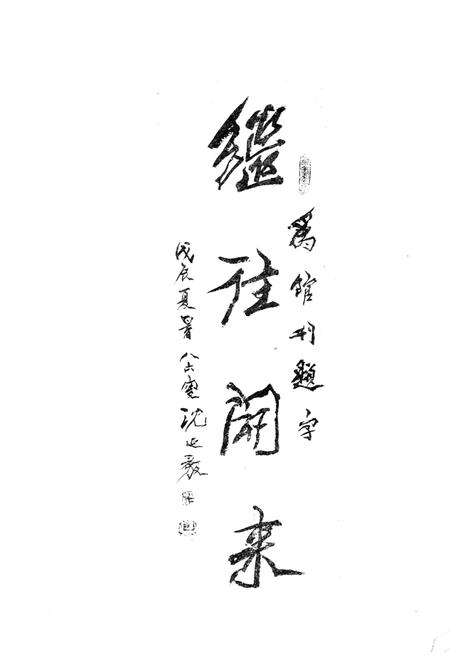 爲館刊題字
繼往開来
戊辰夏暑 八六叟 沈延毅